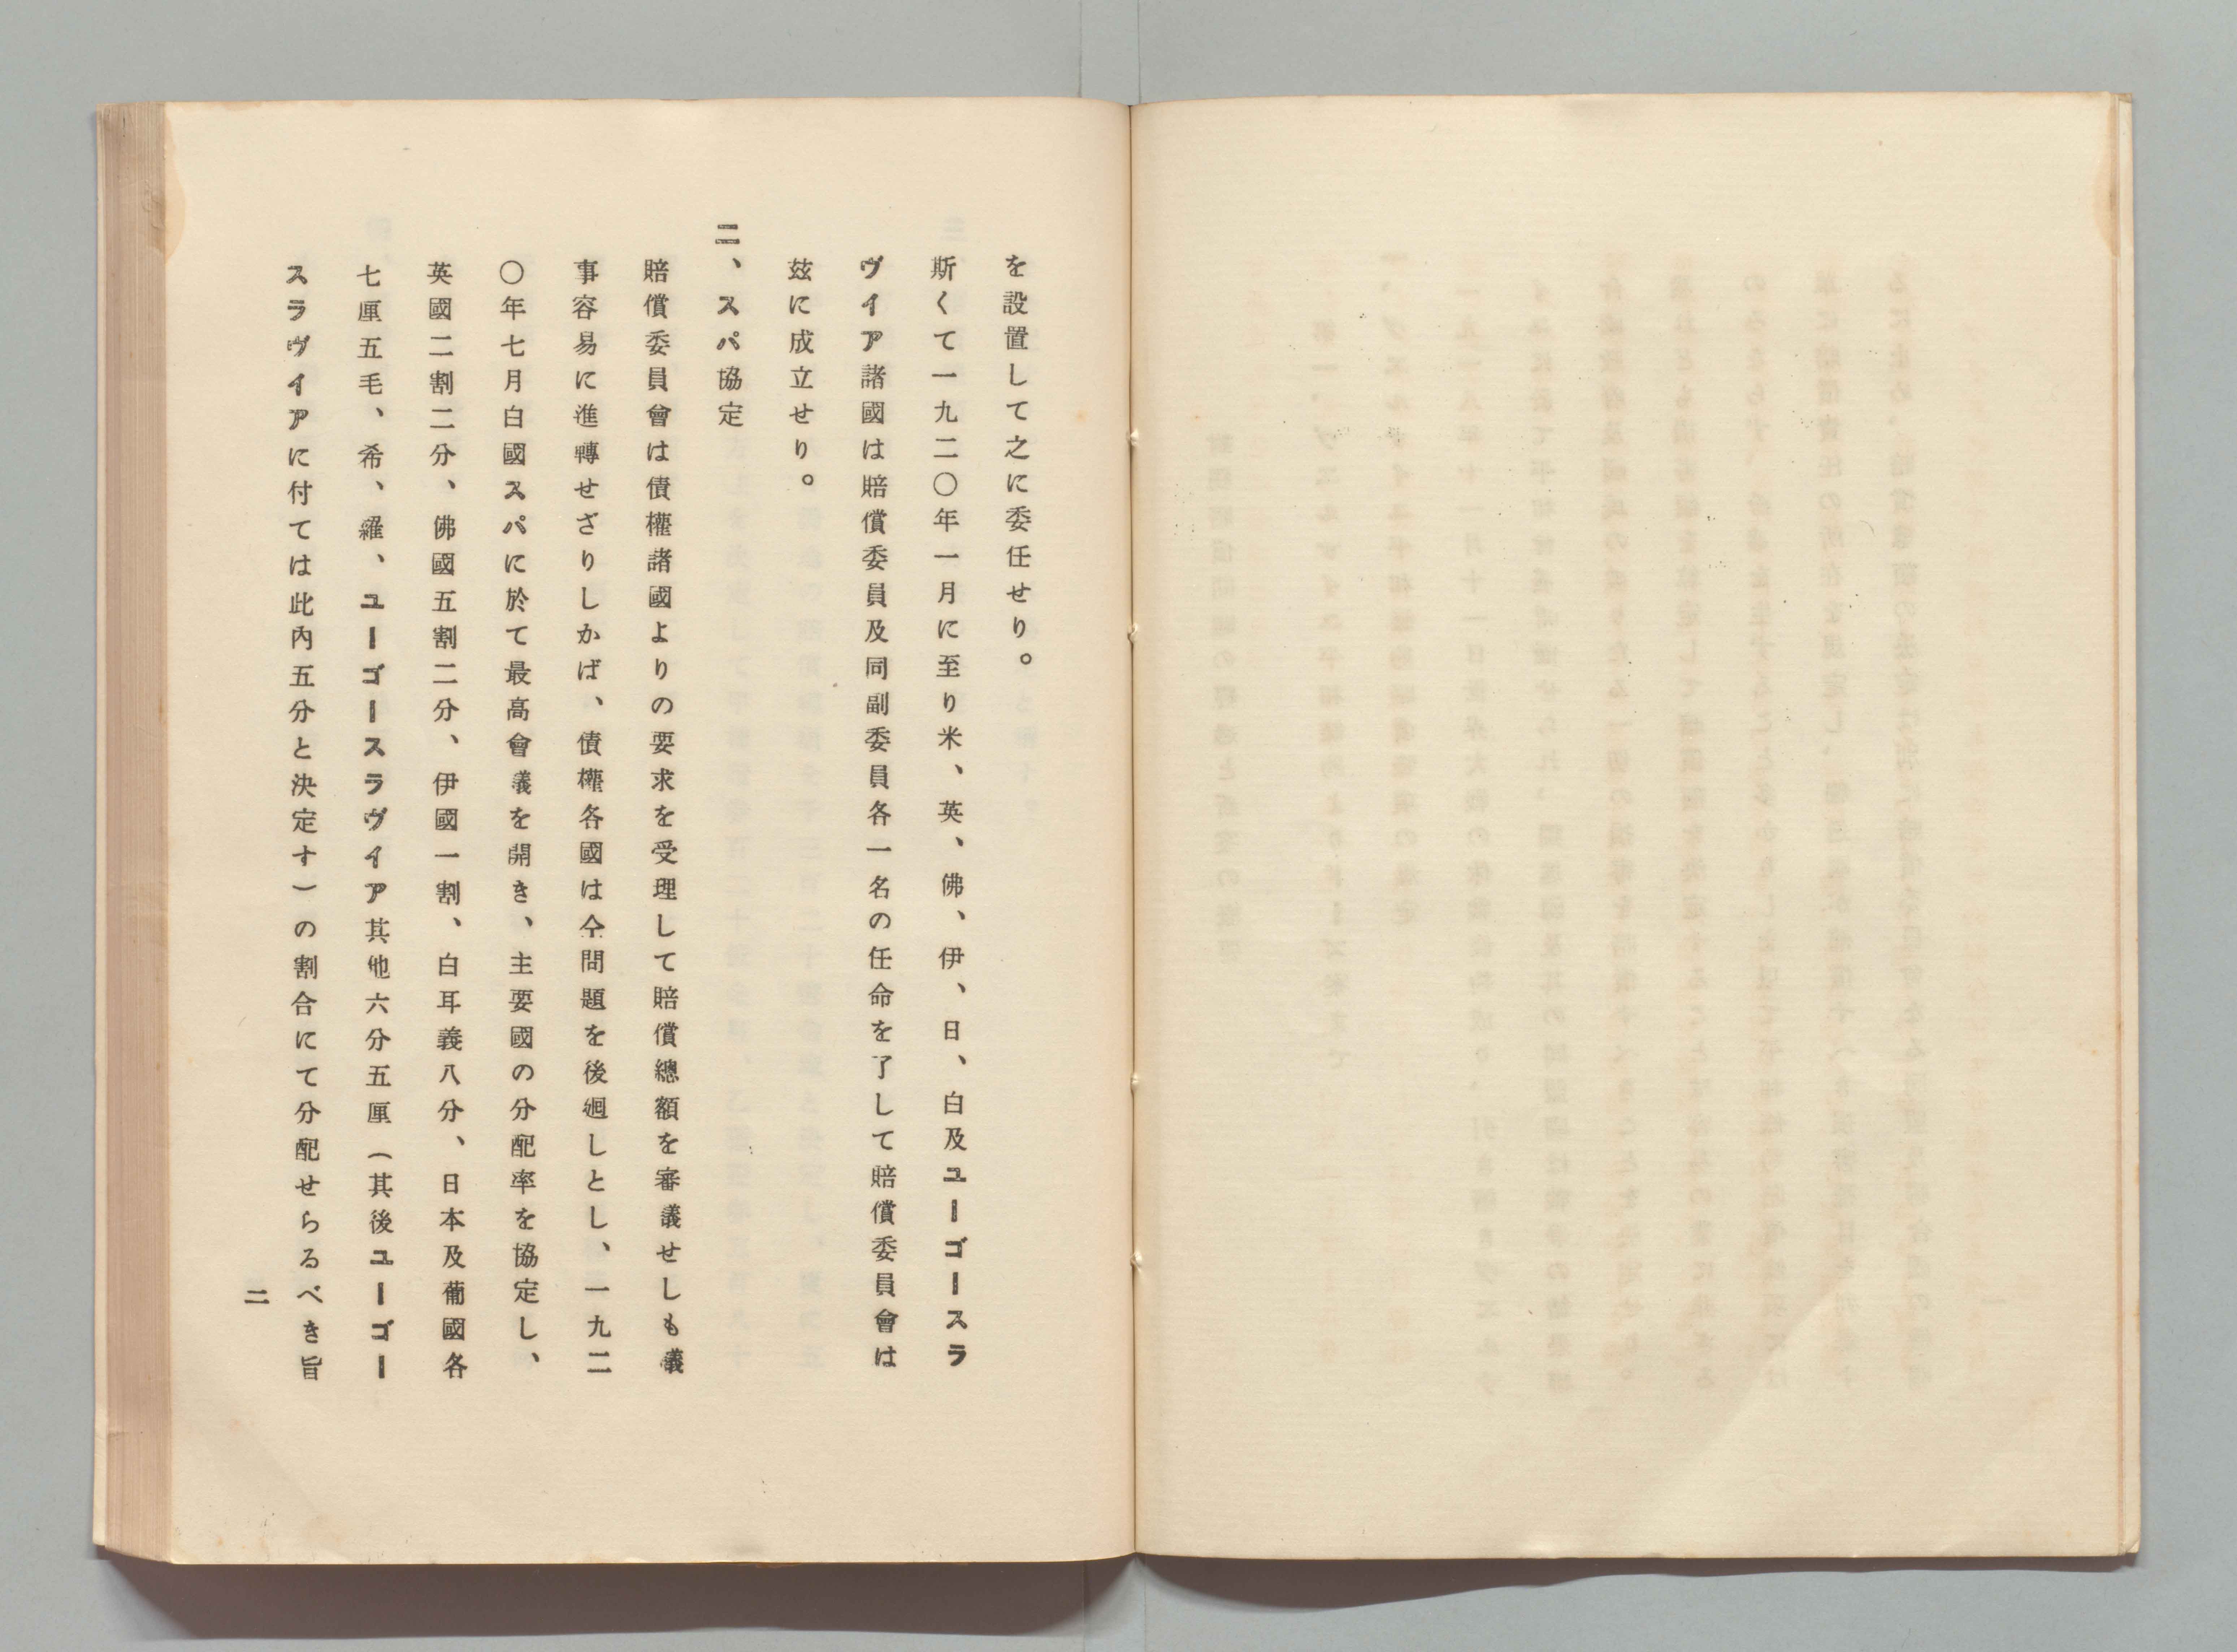 を設置して之に委任せり。
斯くて一九二〇年一月に至り米、英、佛、伊、日、白及ユーゴースラ
ヴイア諸國は賠償委員及同副委員各一名の任命を了して賠償委員會は
玆に成立せり。
二、スパ協定
賠償委員會は債權諸國よりの要求を受理して賠償總額を審議せしも議
事容易に進轉せざりしかば、債權各國は仝問題を後廻しとし、一九二
〇年七月白國スパに於て最高會議を開き、主要國の分配率を協定し、
英國二割二分、佛國五割二分、伊國一割、白耳義八分、日本及葡國各
七厘五毛、希、羅、ユーゴースラヴイア其他六分五厘（其後ユーゴー
スラヴイアに付ては此內五分と決定す）の割合にて分配せらるべき旨
二